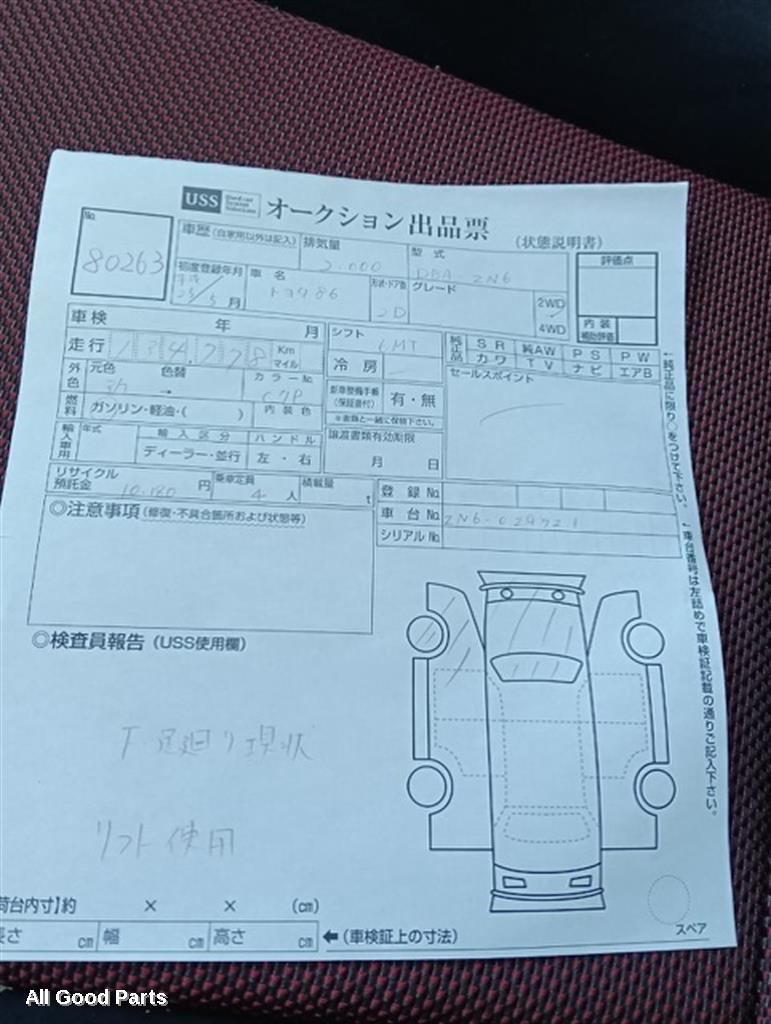 No.
80263
USS オークション出品票 (状態説明書)
車歴 (自家用以外は記入)
排気量
2.000
型式
DBA-ZN6
評価点
初度登録年月
25/5月
車名
トヨタ86
形状・ドア数
2D
グレード
2WD
4WD
内装
補助評価
車検 年 月
シフト
6MT
純正品
SR 純AW PS PW
カワ TV ナビ エアB
走行 134,778 Km マイル
冷房
セールスポイント
外色
元色 色替
カラーNo.
C7P
新車整備手帳
(保証書付)
有・無
※書類と一緒に保管下さい。
燃料
ガソリン・軽油・( )
内装色
輸入車用
年式
輸入区分
ハンドル
ディーラー・並行
左・右
譲渡書類有効期限
月 日
リサイクル預託金
10.180 円
乗車定員
4人
積載量
t
登録No.
車台No. ZN6-029721
シリアルNo.
◎注意事項 (修復・不具合箇所および状態等)
←純正品に限り○をつけて下さい。
←車台番号は左詰めで車検証記載の通りご記入下さい。
◎検査員報告 (USS使用欄)
下・足廻り現状
リフト使用
荷台内寸】約 × × (cm)
長さ cm 幅 cm 高さ cm
←(車検証上の寸法)
スペア
All Good Parts